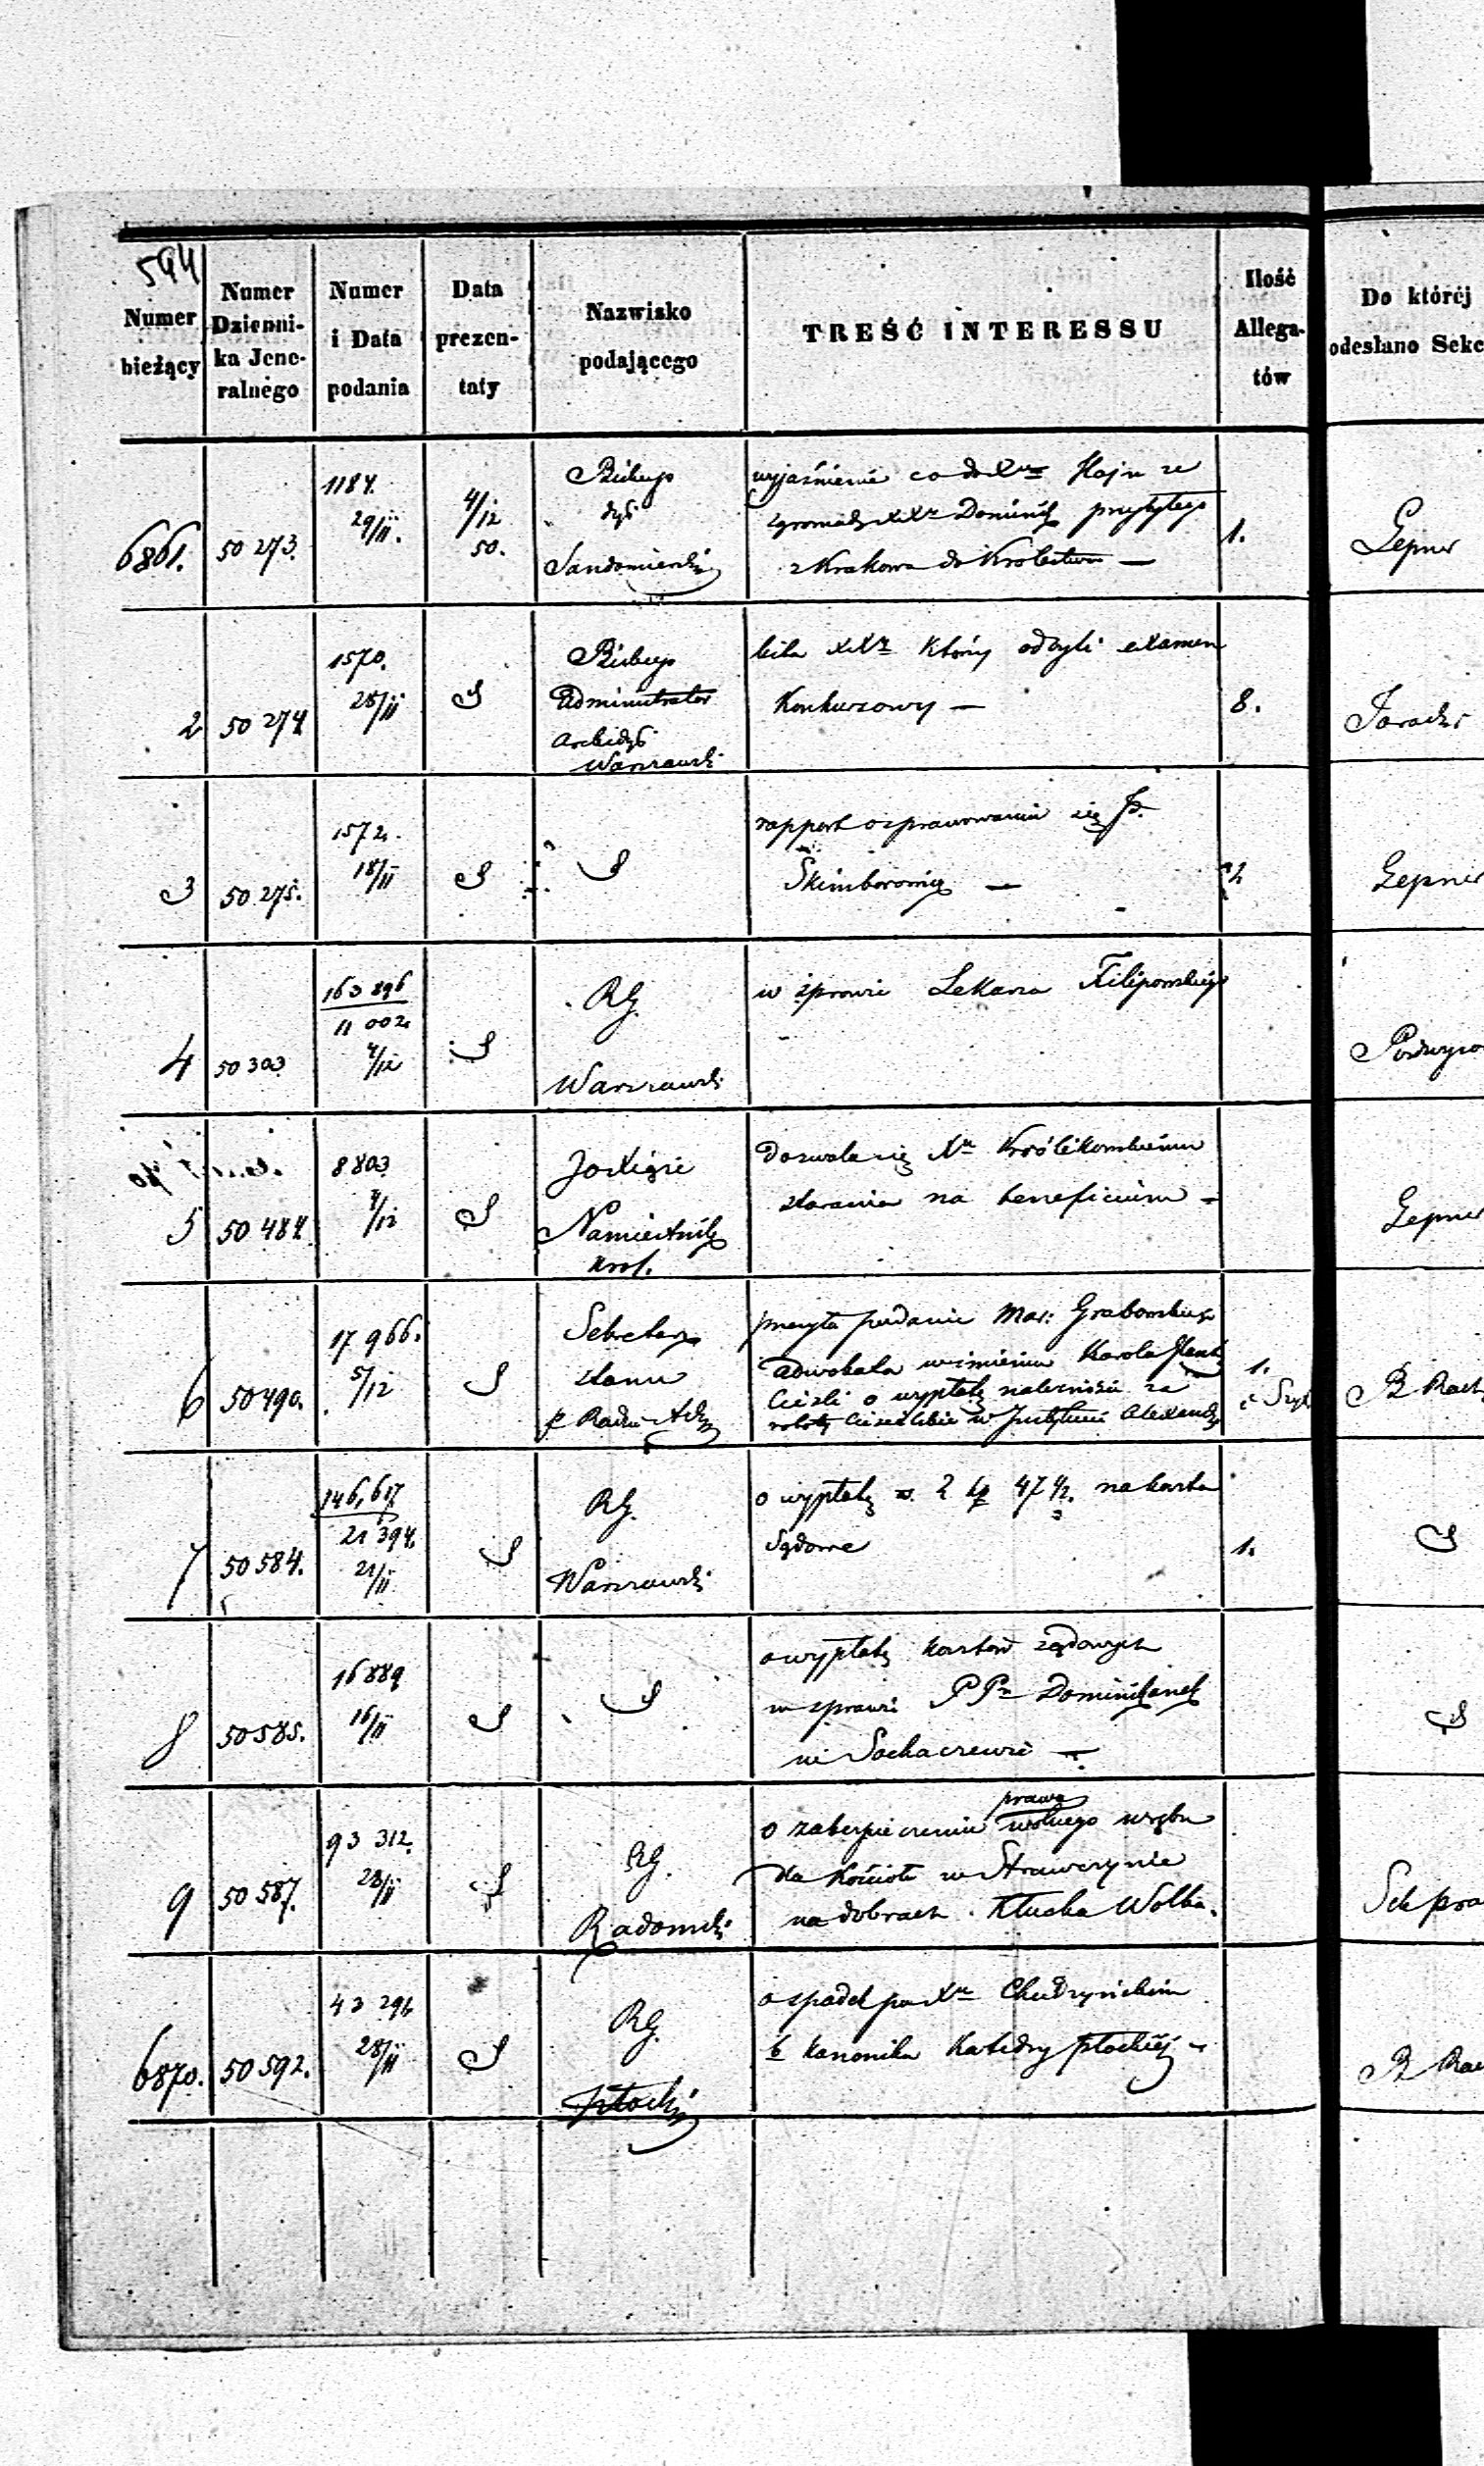 594
Numer bieżący
Numer Dzienni- ka Jene- ralnego
Numer i Data podania
Data prezen- taty
Nazwisko podającego
TREŚĆ INTERESSU
Ilość Allega- tów
Do którėj odesłano Sekc
6861.
50 273.
1184.
29/11.
4/12
50.
Biskup
dyś
Sandomierski
wyjaśnienie co do Xa Hoju ze
zgromadz XXy Dominik przybyłego
z Krakowa do Królestwa —
1.
Lepner
2
50 274
1570.
28/11
Biskup
Administrator
Archidyś
Warszawski
lista XXy którzy odbyli examen
Konkursowy —
8.
3
50 275.
1572.
18/11
rapport o sprawowaniu się
Skimborowicz —
2
Lepner
4
50 303
163 896
11 002
4/12
RG.
Warszawski
w sprawie Lekarza Filipowskiego
5
50 484
8803
4/12
JO Xiąże
Namiestnik
Król.
Dozwala się Xu Królikowskiemu
starania na beneficium —
Lepner
6
50 490.
17 966.
5/12
Sekretarz
Stanu
p Radzie Adm
przesyła podanie Mac: Grabowskiego
Adwokata w imieniu Karola
Cieśli o wypłatę należności za
roboty Ciesielskie w Instytucie Alexandr
1.
7
50 584.
146,617
21 394.
21/11
RG.
Warszawski
o wypłatę 2 47 1/2. na koszta
Sądowe
1.
8
50 585.
16889
16/11
o wypłatę kosztów sądowych
w sprawie PPn Dominikanek
w Sochaczewie —
9
50 587.
93 312.
28/11
RG.
Radomski
prawa
o zabezpieczenie wolnego wrębu
dla Kościoła w Strawczynie
na dobrach Kłucka Wolka.
Sek pra
6870.
50 592.
43 296
28/11
RG.
Płocki
o spadek po Xu Chudzyńskim
b Kanoniku Katedry płockiéj